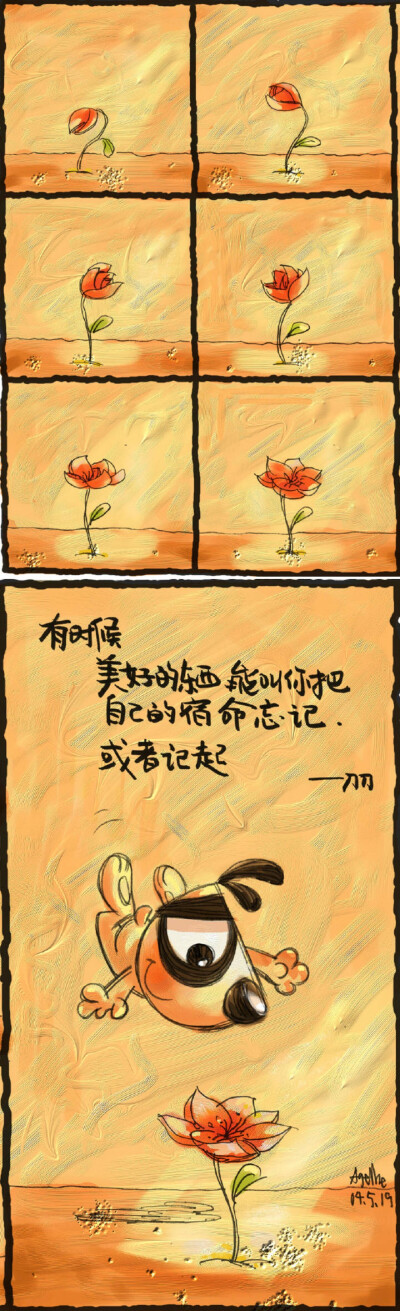 有时候
美好的东西能叫你把
自己的宿命忘记.
或者记起
一刀刀
Agelhe
14.5.19